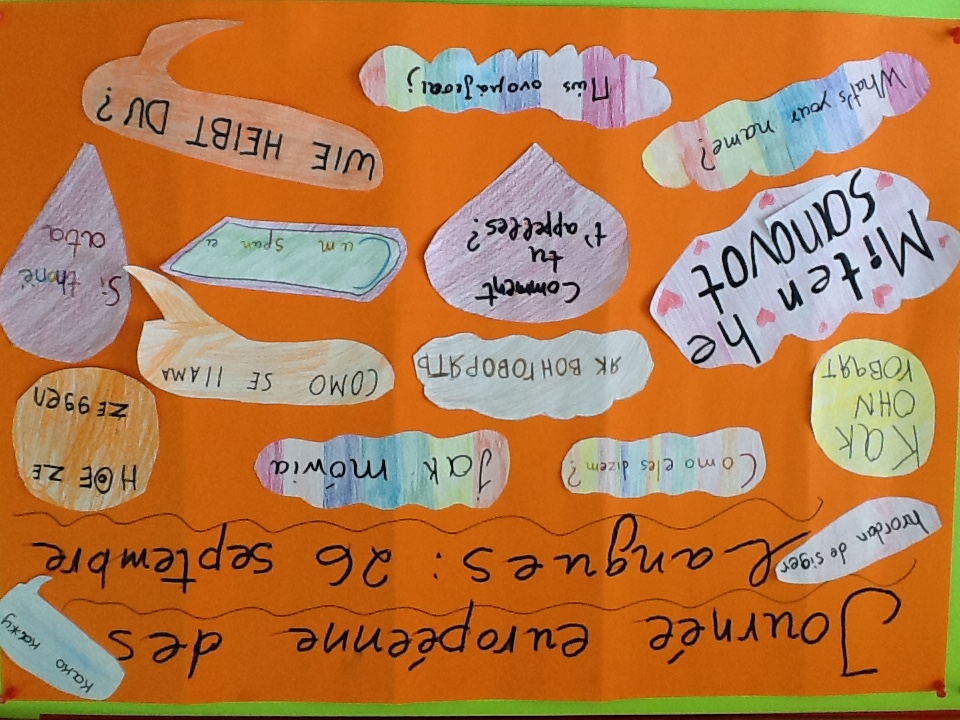 Journée européenne des
како кажу
hvordan de siger
Langues : 26 septembre
Как
ОНН
Como eles dizem?
Jak mówią
HOE ZE
ZEGGEN
ЯК ВОН ГОВОРЯТЬ
COMO SE llAMA
Miten he
sanovat
Comment
tu
t'appelles?
Cum spun ei
Si thonë
ata
What's your name?
Πώς ονομάζεσαι;
WIE HEIßT DU?